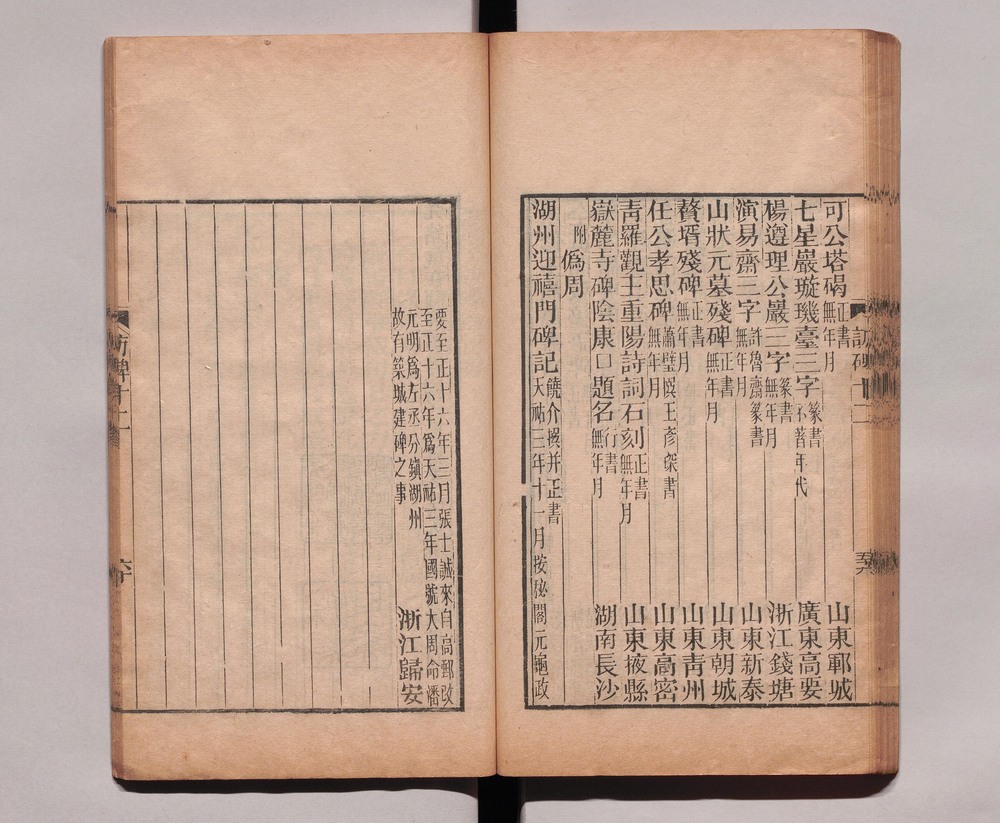 可公塔碣正書無年月 山東鄆城
七星巖璇璣臺三字篆書不著年代 廣東高要
楊遵理公巖三字篆書無年月 浙江錢塘
演易齋三字許魯齋篆書無年月 山東新泰
山狀元墓殘碑正書無年月 山東朝城
贅壻殘碑正書無年月 山東青州
任公孝思碑蕭璧撰王彥桀書無年月 山東高密
青羅觀主重陽詩詞石刻正書無年月 山東掖縣
嶽麓寺碑陰康口題名行書無年月 湖南長沙
附偽周
湖州迎禧門碑記饒介撰并正書天祐三年十一月按秘閣元龜政
要至正十六年三月張士誠來自高郵改
至正十六年為天祐三年國號大周命潘
元明為左丞分鎮湖州
故有築城建碑之事 浙江歸安
訪碑十二
訪碑十二